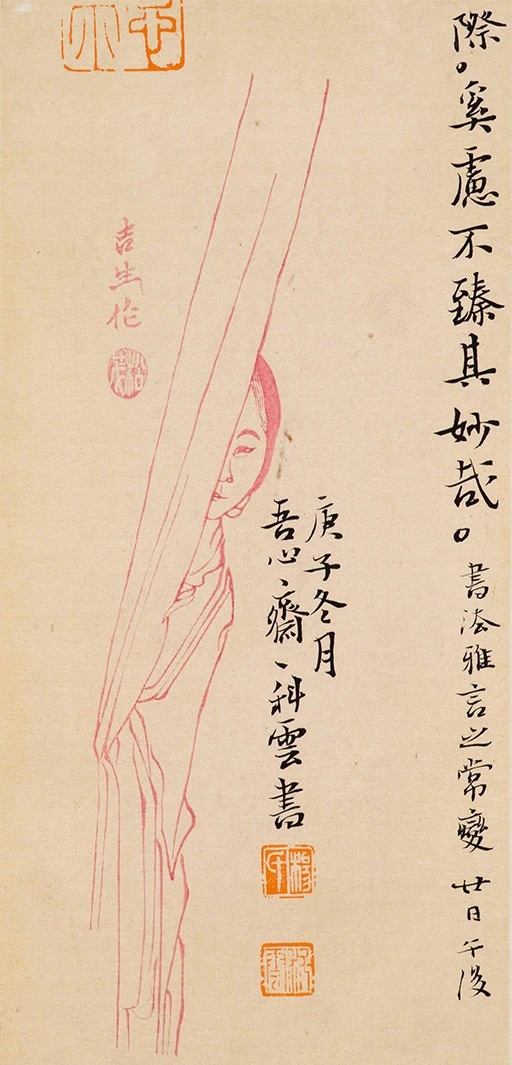 際。奚慮不臻其妙哉。書法雅言之常變 廿日午後
庚子冬月
吾心齋 科雲書
吉生作